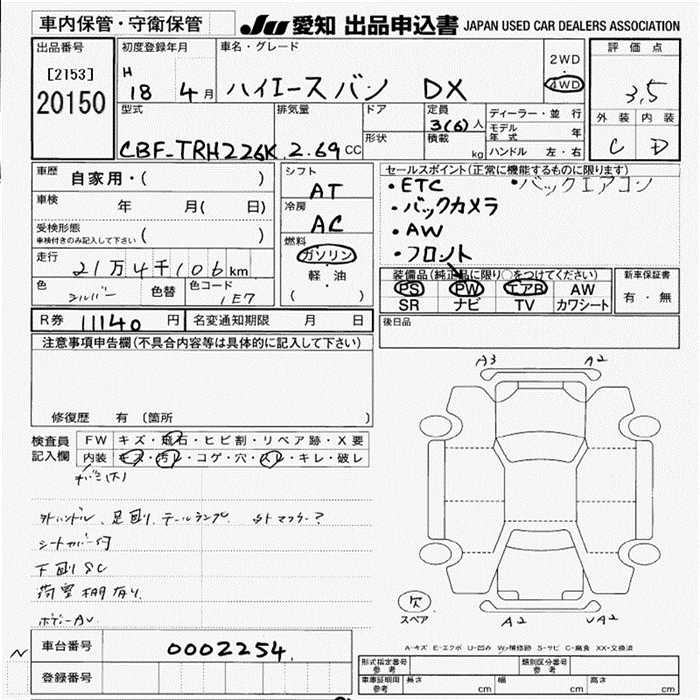 車内保管・守衛保管 JU 愛知 出品申込書 JAPAN USED CAR DEALERS ASSOCIATION
出品番号
[2153]
20150
初度登録年月
H 18 4月
車名・グレード
ハイエース バン DX
2WD
・
4WD
評価点
3,5
外装 内装
C D
型式
CBF-TRH226K
排気量
2.69cc
ドア
形状
定員
3(6)人
積載
kg
ディーラー・並行
モデル年式 年
ハンドル 左・右
車歴 自家用・( )
車検 年 月( 日)
受検形態
車検付きのみ記入して下さい ( )
走行 21万4千106km
色 シルバー 色替 色コード 1E7
シフト
AT
冷房
AC
燃料
ガソリン
軽・油
( )
セールスポイント(正常に機能するものに限ります)
・ETC ・バックエアコン
・バックカメラ
・AW
・フロント
装備品(純正品に限り○をつけてください)
PS PW エアB AW
SR ナビ TV カワシート
新車保証書
有・無
R券 11140円 名変通知期限 月 日
後日品
注意事項申告欄(不具合内容等は具体的に記入して下さい)
修復歴 有 (箇所 )
検査員記入欄
FW キズ・飛石・ヒビ割・リペア跡・X要
内装 キズ・汚レ・コゲ・穴・スレ・キレ・破レ
外ハンドル、足廻り、テールランプ
シートカバー付
下廻りSC
荷室棚有り
A3 A2
欠
スペア
A2 UA2
A-キズ E-エクボ U-凹み W-補修跡 S-サビ C-腐食 XX-交換済
車台番号 0002254
登録番号
形式指定番号 参考
類別区分番号 参考
車庫証明用 参考 長さ cm 幅 cm 高さ cm